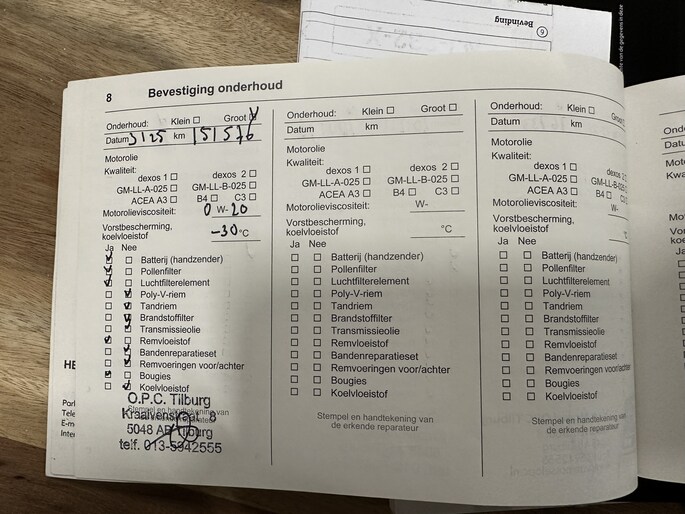 6 Bevinding
8 Bevestiging onderhoud
Onderhoud: Klein ☐ Groot ☑
Datum 3/25 km 151576
Motorolie
Kwaliteit:
dexos 1 ☐ dexos 2 ☐
GM-LL-A-025 ☐ GM-LL-B-025 ☐
ACEA A3 ☐ B4 ☐ C3 ☐
Motorolieviscositeit: 0 W- 20
Vorstbescherming,
koelvloeistof -30 °C
Ja Nee
☑ ☐ Batterij (handzender)
☑ ☐ Pollenfilter
☑ ☐ Luchtfilterelement
☐ ☑ Poly-V-riem
☐ ☑ Tandriem
☐ ☑ Brandstoffilter
☐ ☑ Transmissieolie
☑ ☐ Remvloeistof
☐ ☑ Bandenreparatieset
☐ ☑ Remvoeringen voor/achter
☑ ☐ Bougies
☐ ☑ Koelvloeistof
O.P.C. Tilburg
Stempel en handtekening van
Kraaivenstraat 8
5048 AB Tilburg
telf. 013-5942555
Onderhoud: Klein ☐ Groot ☐
Datum km
Motorolie
Kwaliteit:
dexos 1 ☐ dexos 2 ☐
GM-LL-A-025 ☐ GM-LL-B-025 ☐
ACEA A3 ☐ B4 ☐ C3 ☐
Motorolieviscositeit: W-
Vorstbescherming,
koelvloeistof °C
Ja Nee
☐ ☐ Batterij (handzender)
☐ ☐ Pollenfilter
☐ ☐ Luchtfilterelement
☐ ☐ Poly-V-riem
☐ ☐ Tandriem
☐ ☐ Brandstoffilter
☐ ☐ Transmissieolie
☐ ☐ Remvloeistof
☐ ☐ Bandenreparatieset
☐ ☐ Remvoeringen voor/achter
☐ ☐ Bougies
☐ ☐ Koelvloeistof
Stempel en handtekening van
de erkende reparateur
Onderhoud: Klein ☐ Groot ☐
Datum km
Motorolie
Kwaliteit:
dexos 1 ☐ dexos
GM-LL-A-025 ☐ GM-LL-B-025
ACEA A3 ☐ B4 ☐ C3 ☐
Motorolieviscositeit: W-
Vorstbescherming,
koelvloeistof °C
Ja Nee
☐ ☐ Batterij (handzender)
☐ ☐ Pollenfilter
☐ ☐ Luchtfilterelement
☐ ☐ Poly-V-riem
☐ ☐ Tandriem
☐ ☐ Brandstoffilter
☐ ☐ Transmissieolie
☐ ☐ Remvloeistof
☐ ☐ Bandenreparatieset
☐ ☐ Remvoeringen voor/achter
☐ ☐ Bougies
☐ ☐ Koelvloeistof
Stempel en handtekening van
de erkende reparateur